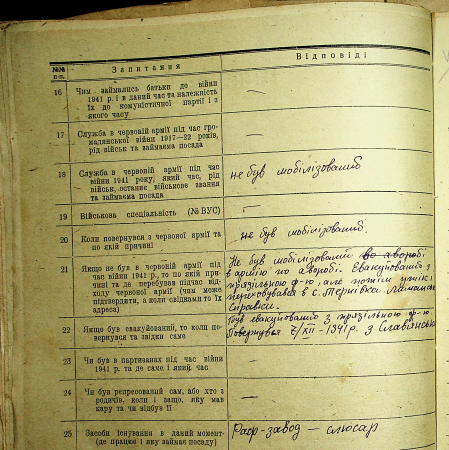 №№ п-п.
Запитання
Відповіді
16
Чим займались батьки до війни
1941 р. і в даний час та належність
їх до комуністичної партії і з
якого часу
—
17
Служба в червоній армії під час гро-
мадянської війни 1917—22 років,
рід військ та займаєма посада
—
18
Служба в червоній армії під час
війни 1941 року, який час, рід
військ, останнє військове звання
та займаєма посада
не був мобілізований
19
Військова спеціальність (№ ВУС)
—
20
Коли повернувся з червоної армії та
по якій причині
не був мобілізований.
21
Якщо не був в червоній армії під
час війни 1941 р., то по якій при-
чині та де перебував підчас від-
ходу червоної армії (чим може
підтвердити, а коли свідками то їх
адреса)
Не був мобілізований во хворобі
в армію по хворобі. Евакуйований з
прядільною ф-ю, але потім
переховувався в с. Тернівка
справки.
22
Якщо був евакуйований, то коли по-
вернувся та звідки саме
Був евакуйований з прядільною ф-ю.
Повернувся 7/XII - 1941 р. з Славянська
23
Чи був в партизанах під час війни
1941 р. та де саме і який час
—
24
Чи був репресований сам, або хто з
родичів, коли і защо, яку мав
кару та чи відбув її
—
25
Засоби існування в даний момент
(де працює і яку займає посаду)
завод — слюсар